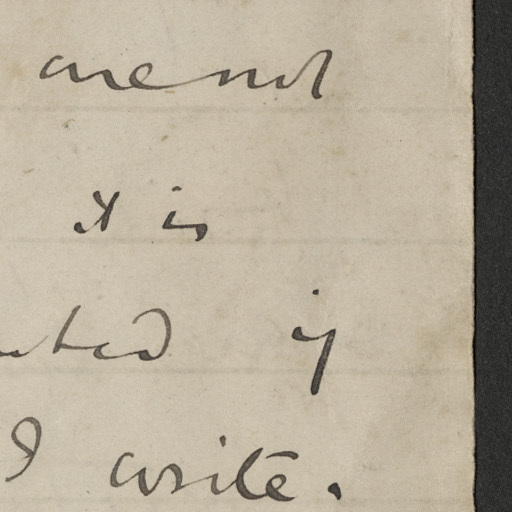 are not
it is
if
I write.